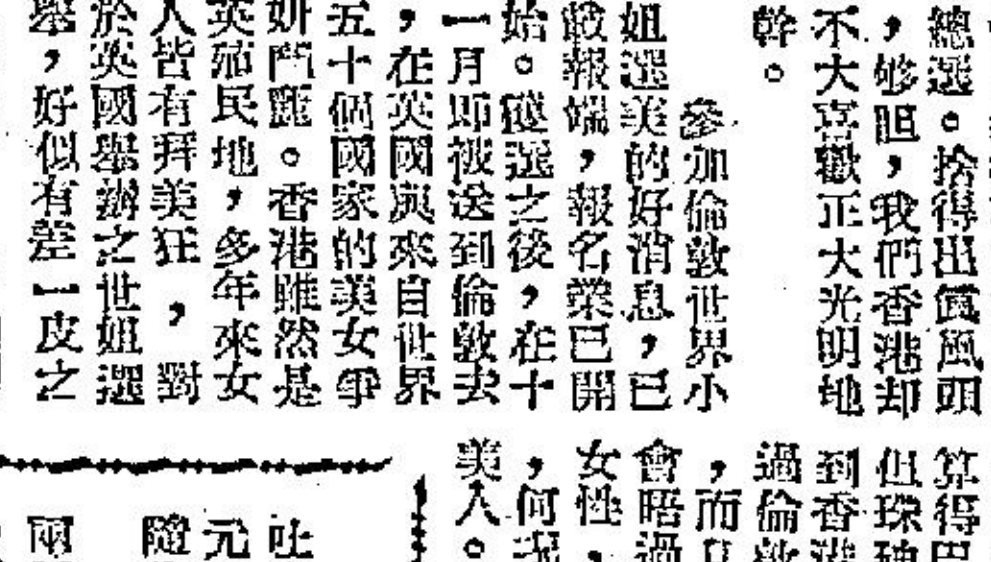 總選。捨得出儘風頭
，够胆，我們香港却
不大喜歡正大光明地
幹。
參加倫敦世界小
姐選美的好消息，已
載報端，報名業已開
始。獲選之後，在十
一月即被送到倫敦去
，在英國與來自世界
五十個國家的美女爭
妍鬥麗。香港雖然是
英殖民地，多年來女
人皆有拜美狂，對
於英國舉辦之世姐選
舉，好似有差一皮之
算得
但珠
到香港
過倫敦
，而
會晤過
女性，
，何況
美人。
吐
元
隨
兩